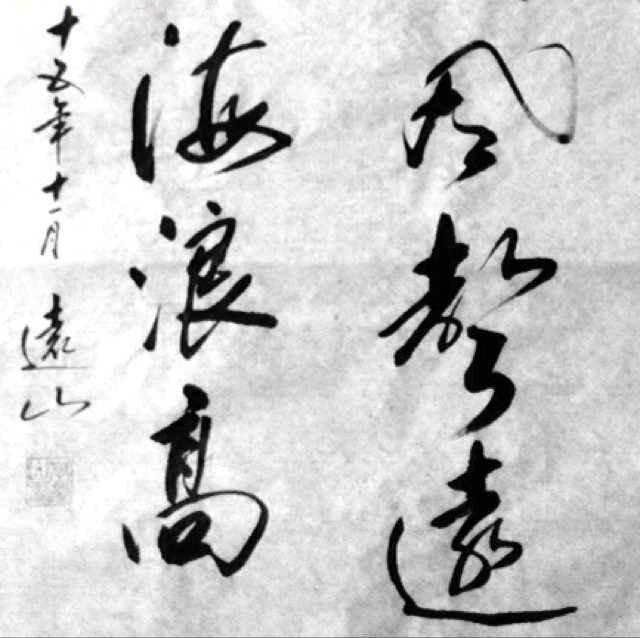 風聲遠
海浪高
十五年十一月 遠山